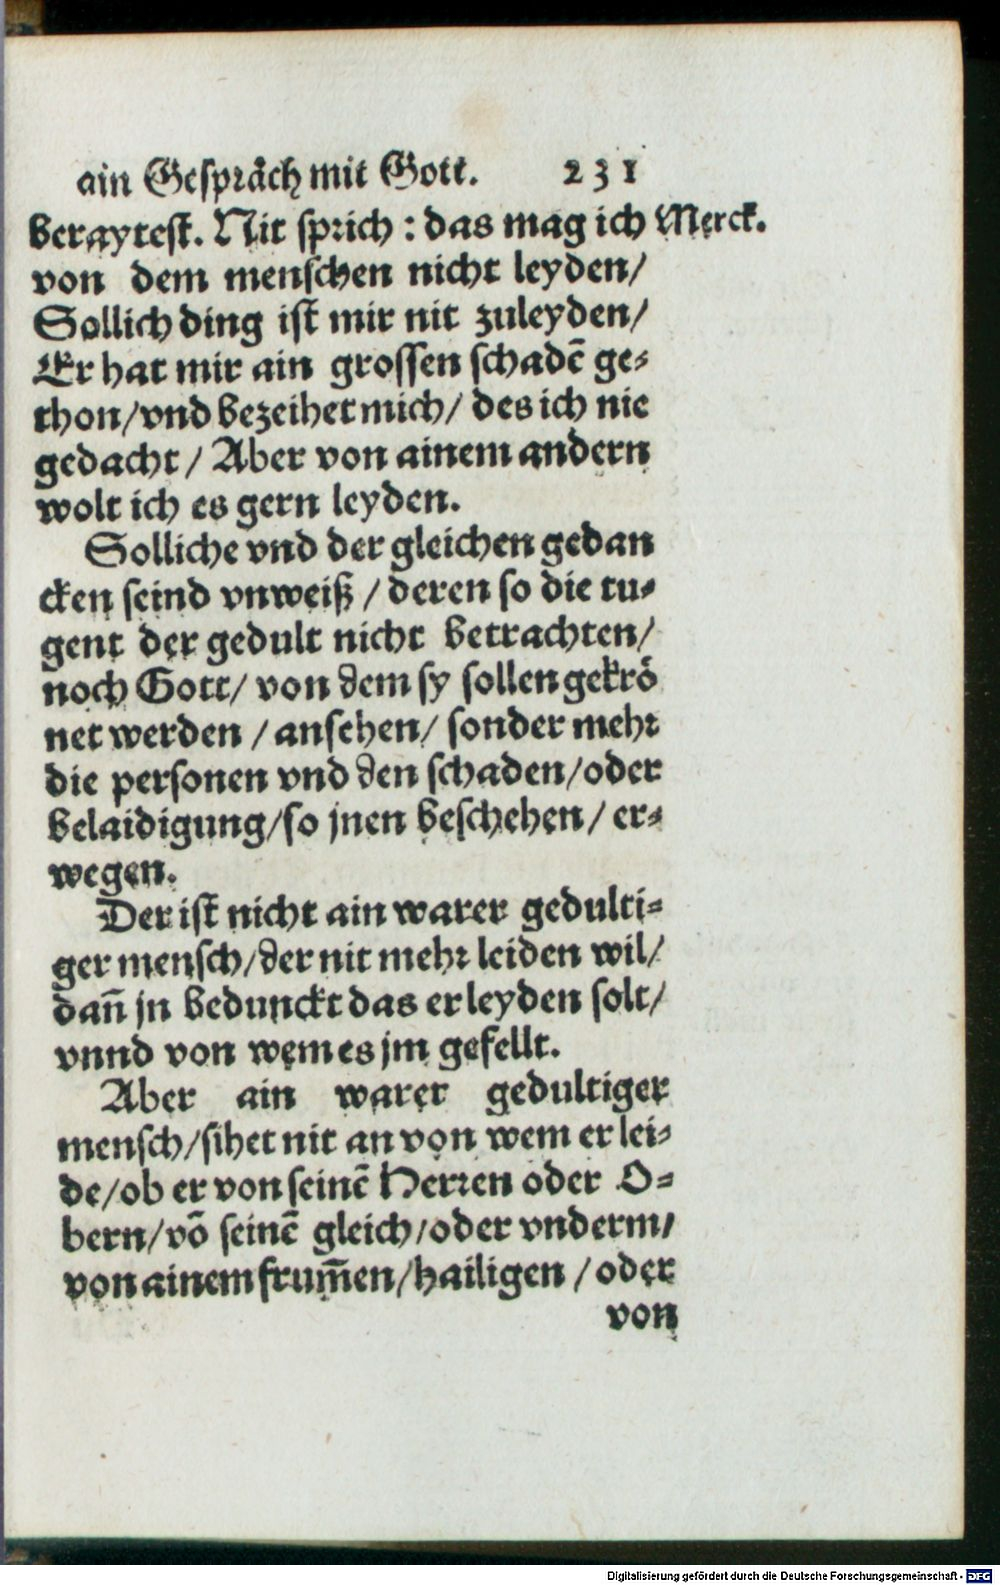 ain Gespräch mit Gott. 231
beraytest. Nit sprich : das mag ich Merck.
von dem menschen nicht leyden/
Sollich ding ist mir nit zuleyden/
Er hat mir ain grossen schadē ge-
thon/vnd bezeihet mich/ des ich nie
gedacht/ Aber von ainem andern
wolt ich es gern leyden.
Solliche vnd der gleichen gedan
cken seind vnweiß / deren so die tu-
gent der gedult nicht betrachten/
noch Gott/ von dem sy sollen gekrö
net werden / ansehen/ sonder mehr
die personen vnd den schaden/oder
belaidigung/so jnen beschehen/ er-
wegen.
Der ist nicht ain warer gedulti-
ger mensch/der nit mehr leiden wil/
dañ jn bedunckt das er leyden solt/
vnnd von wem es jm gefellt.
Aber ain warer gedultiger
mensch/sihet nit an von wem er lei-
de/ob er von seinē Herren oder O-
bern/vō seinē gleich/oder vnderm/
von ainem frum̄en/hailigen / oder
von
Digitalisierung gefördert durch die Deutsche Forschungsgemeinschaft - DFG